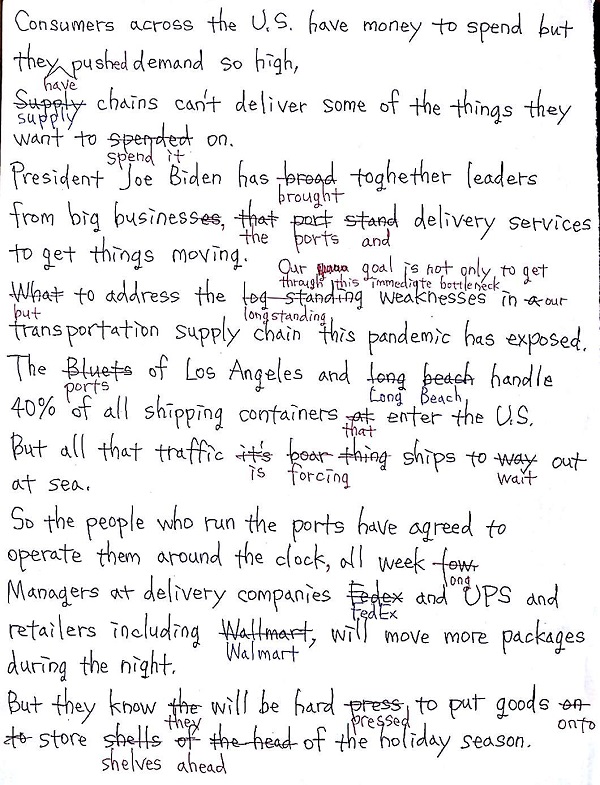 Consumers across the U.S. have money to spend but
they pushed demand so high,
have
Supply chains can't deliver some of the things they
supply
want to spended on.
spend it
President Joe Biden has broad toghether leaders
brought
from big businesses, that port stand delivery services
the ports and
to get things moving.
Our goal is not only to get
through this immediate bottleneck
What to address the log standing weaknesses in a our
but longstanding
transportation supply chain this pandemic has exposed.
The Bluets of Los Angeles and long beach handle
ports Long Beach
40% of all shipping containers at enter the U.S.
that
But all that traffic it's boar thing ships to way out
is forcing wait
at sea.
So the people who run the ports have agreed to
operate them around the clock, all week tow
long
Managers at delivery companies Fedex and UPS and
FedEx
retailers including Wallmart, will move more packages
Walmart
during the night.
But they know the will be hard press, to put goods on
they pressed onto
to store shells of the head of the holiday season.
shelves ahead